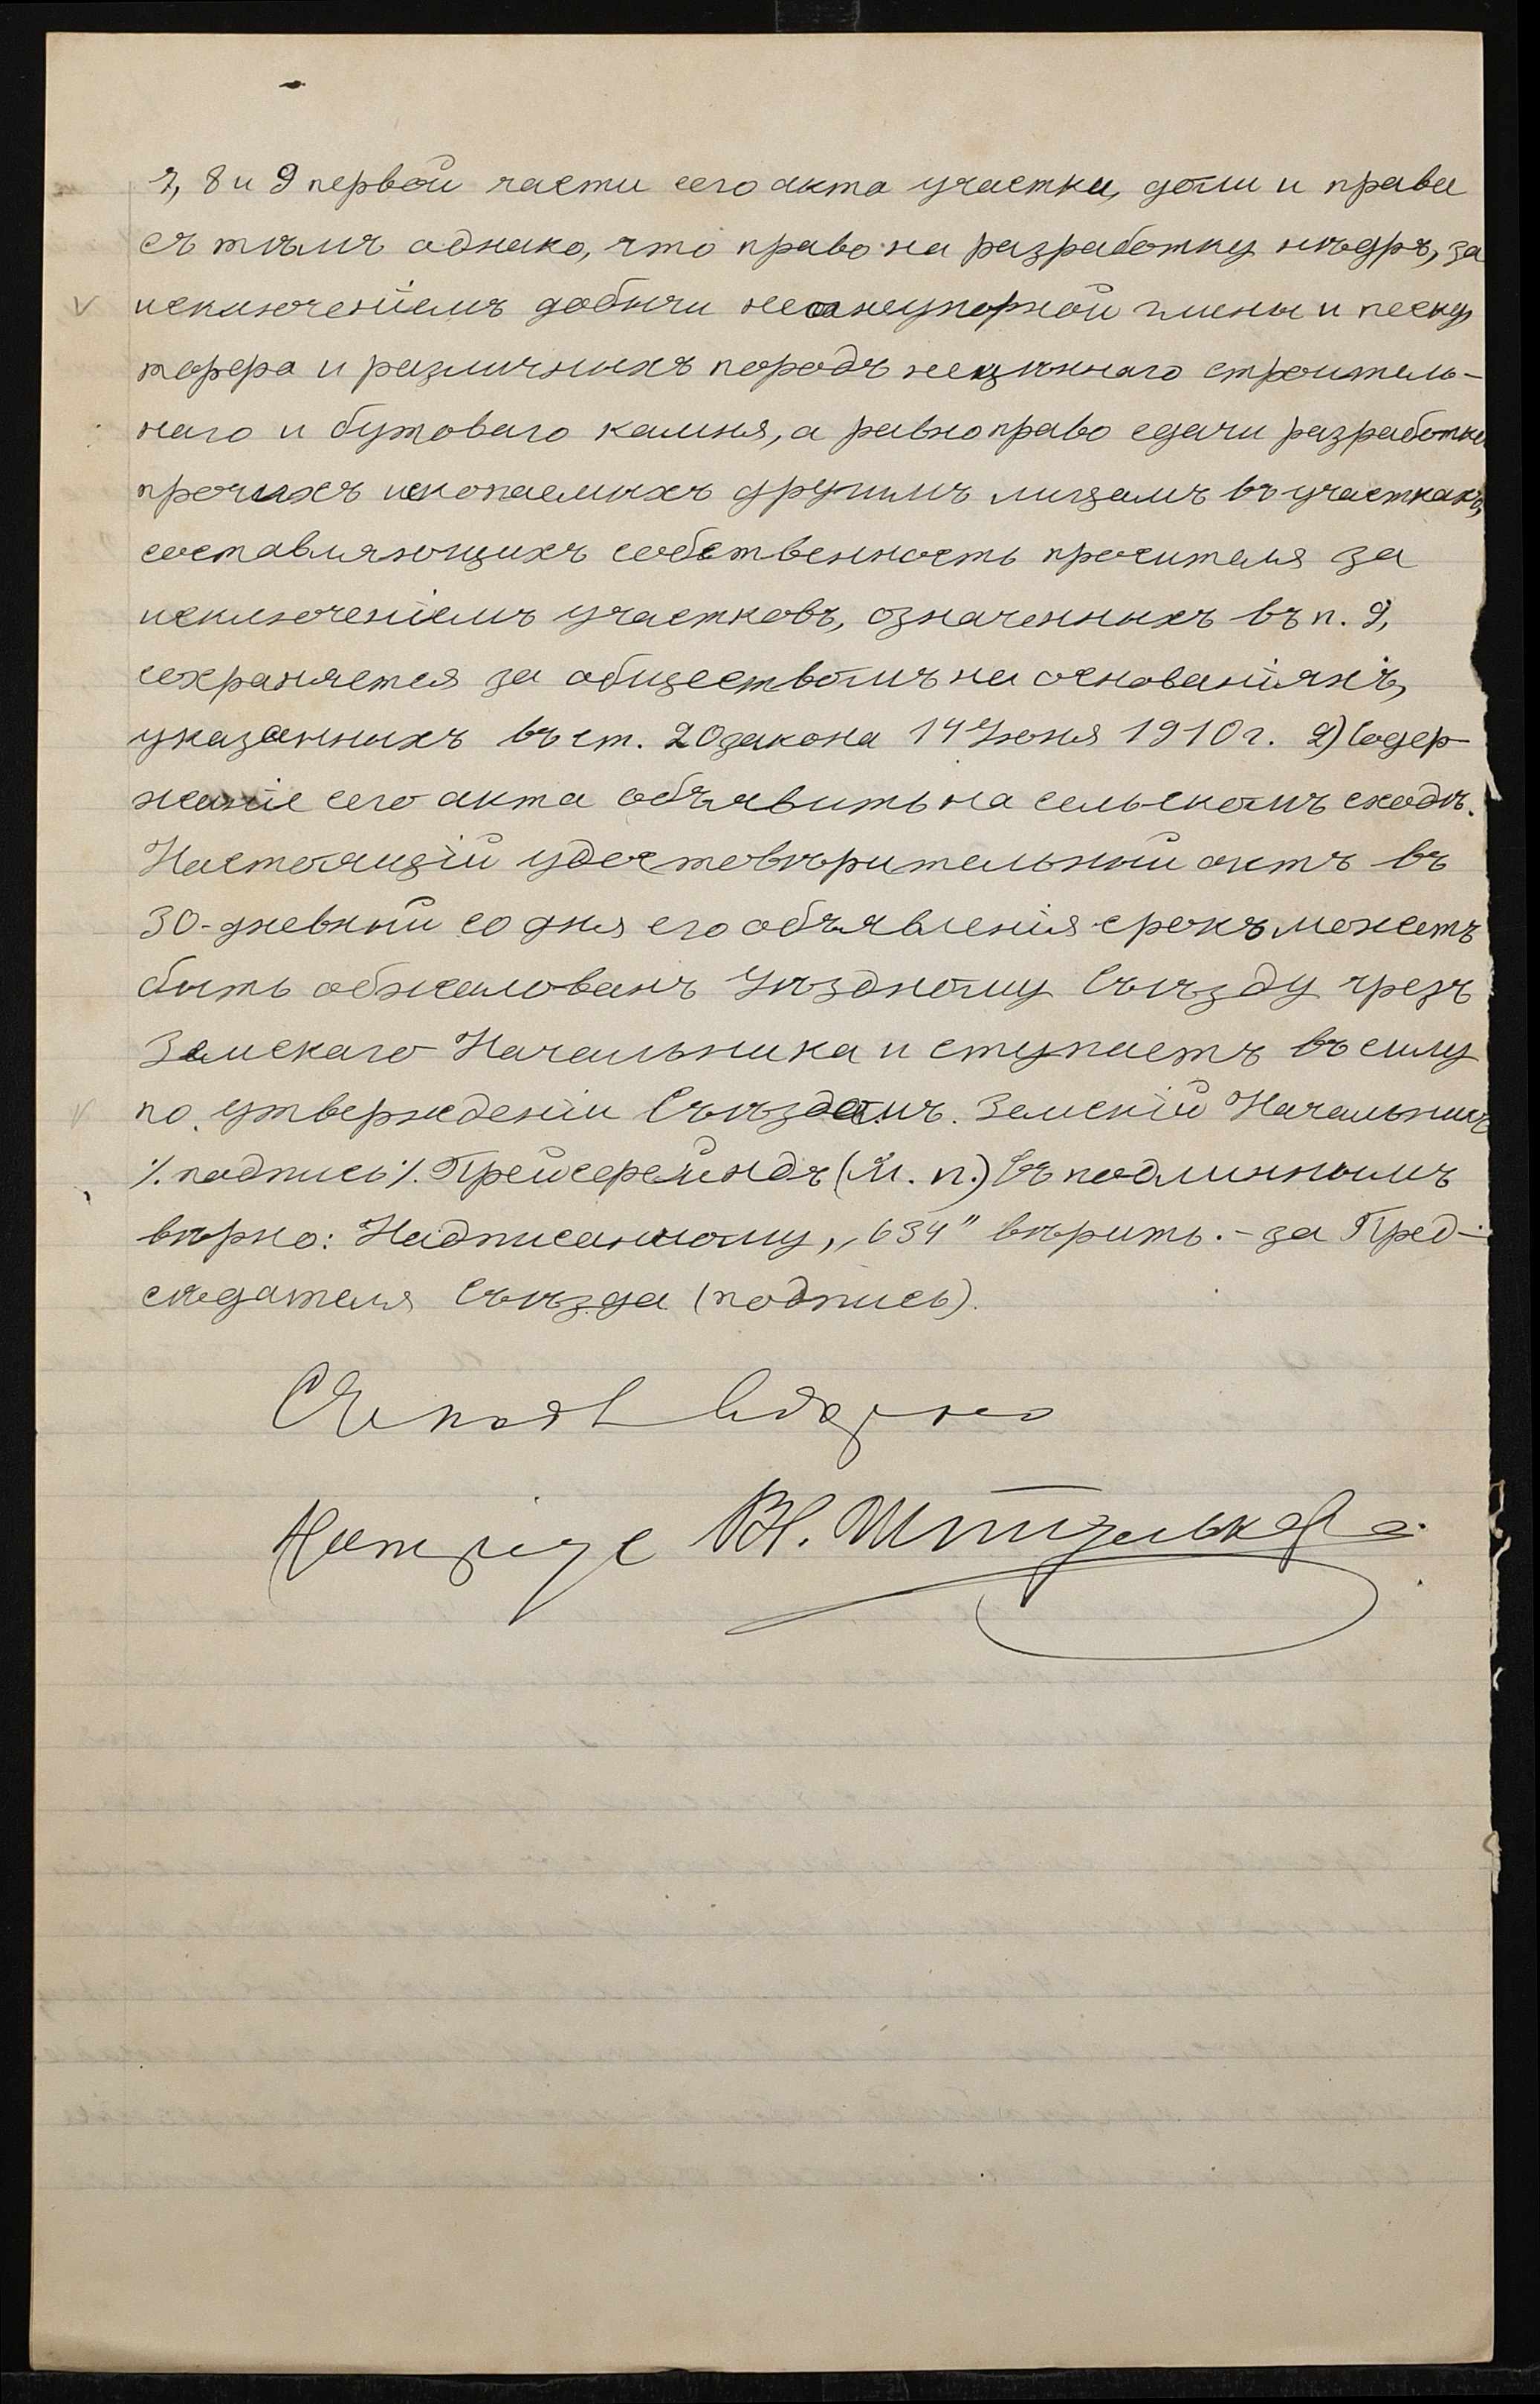 7, 8 и 9 первой части сего акта участки, доли и права
съ тѣмъ однако, что право на разработку нѣдръ, за
исключеніемъ добычи неогнеупорной глины и песку
торфа и различныхъ породъ нецѣннаго строитель-
наго и бутоваго камня, а равно право сдачи разработки
прочихъ ископаемыхъ другимъ лицамъ въ участкахъ,
составляющихъ собственность просителя за
исключеніемъ участковъ, означенныхъ въ п. 9,
сохраняется за обществомъ на основаніяхъ,
указанныхъ въ ст. 20 закона 14 Іюня 1910 г. 2) Содер-
жаніе сего акта объявить на сельскомъ сходѣ.
Настоящій удостовѣрительный актъ въ
30-дневный со дня его объявленія срокъ можетъ
быть обжалованъ Уѣздному Съѣзду чрезъ
Земскаго Начальника и ступаетъ въ силу
по утвержденіи Съѣздомъ. Земскій Начальникъ
/. подпись /. Прейсфрейндъ (М. п.) Съ подлиннымъ
вѣрно: Надписанному „634" вѣрить. - за Пред-
сѣдателя Съѣзда (подпись).